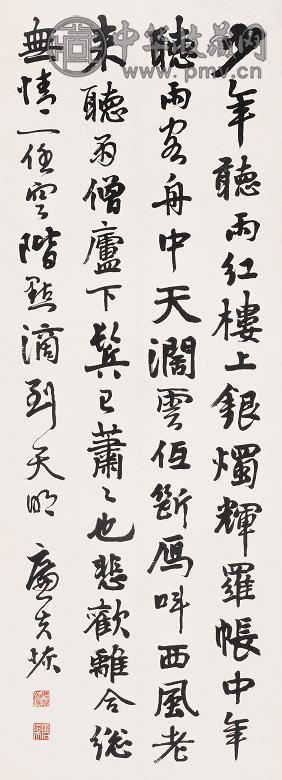 中华收藏网
www.pmv.cn
少年聽雨紅樓上銀燭輝羅帳中年
聽雨客舟中天濶雲低斷鴈叫西風老
来聽雨僧廬下鬓已蕭〻也悲歡離合總
無情一任空階點滴到天明